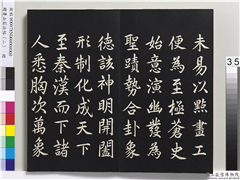 未易以點畫工
便為至極倉史
始意演幽發為
聖蹟勢合卦象
德該神明開闔
形制化成天下
至秦漢而下諸
人悉胸次萬象
35